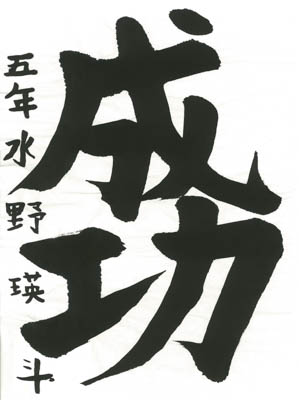 成功
五年水野瑛斗